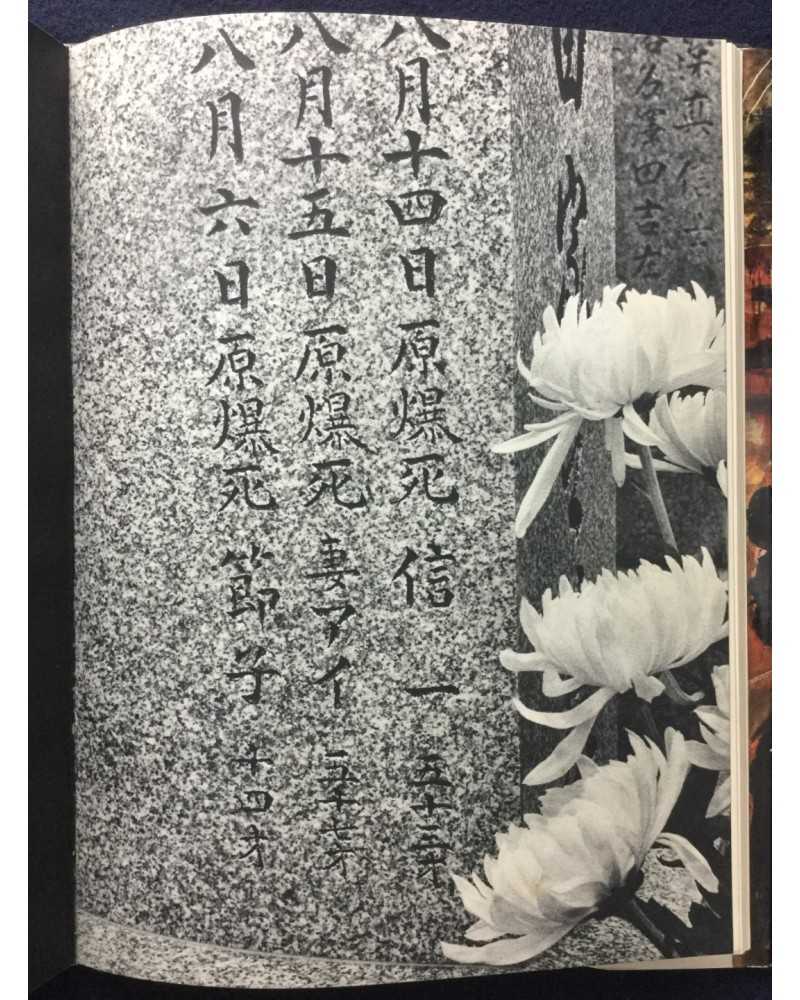 真信
八月十四日原爆死 信一 五十三才
八月十五日原爆死 妻アイ 五十七才
八月六日原爆死 節子 十四才